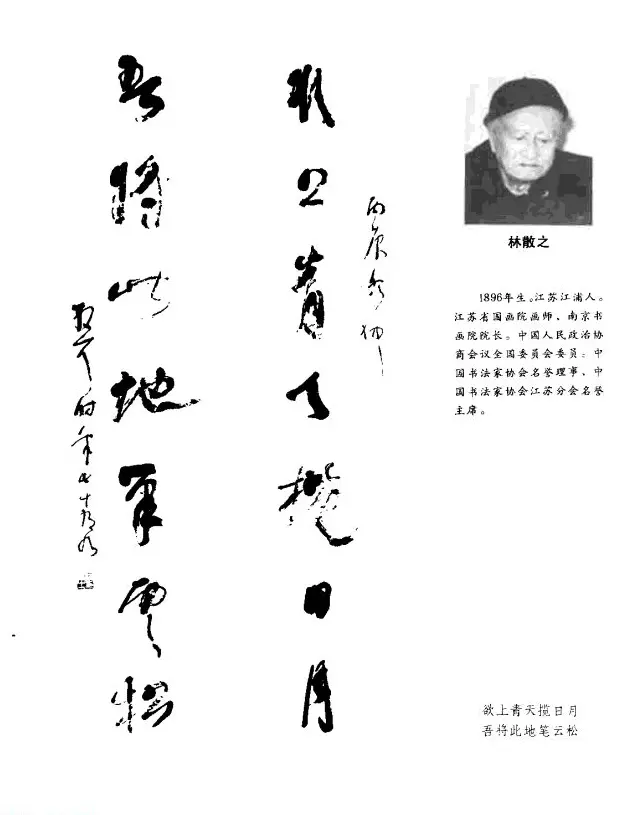 林散之
1896年生。江苏江浦人。
江苏省国画院画师、南京书
画院院长。中国人民政治协
商会议全国委员会委员。中
国书法家协会名誉理事、中
国书法家协会江苏分会名誉
主席。
丙辰冬初
欲上青天攬日月
吾將此地筆雲松
散耳時年七十有九
欲上青天揽日月
吾将此地笔云松